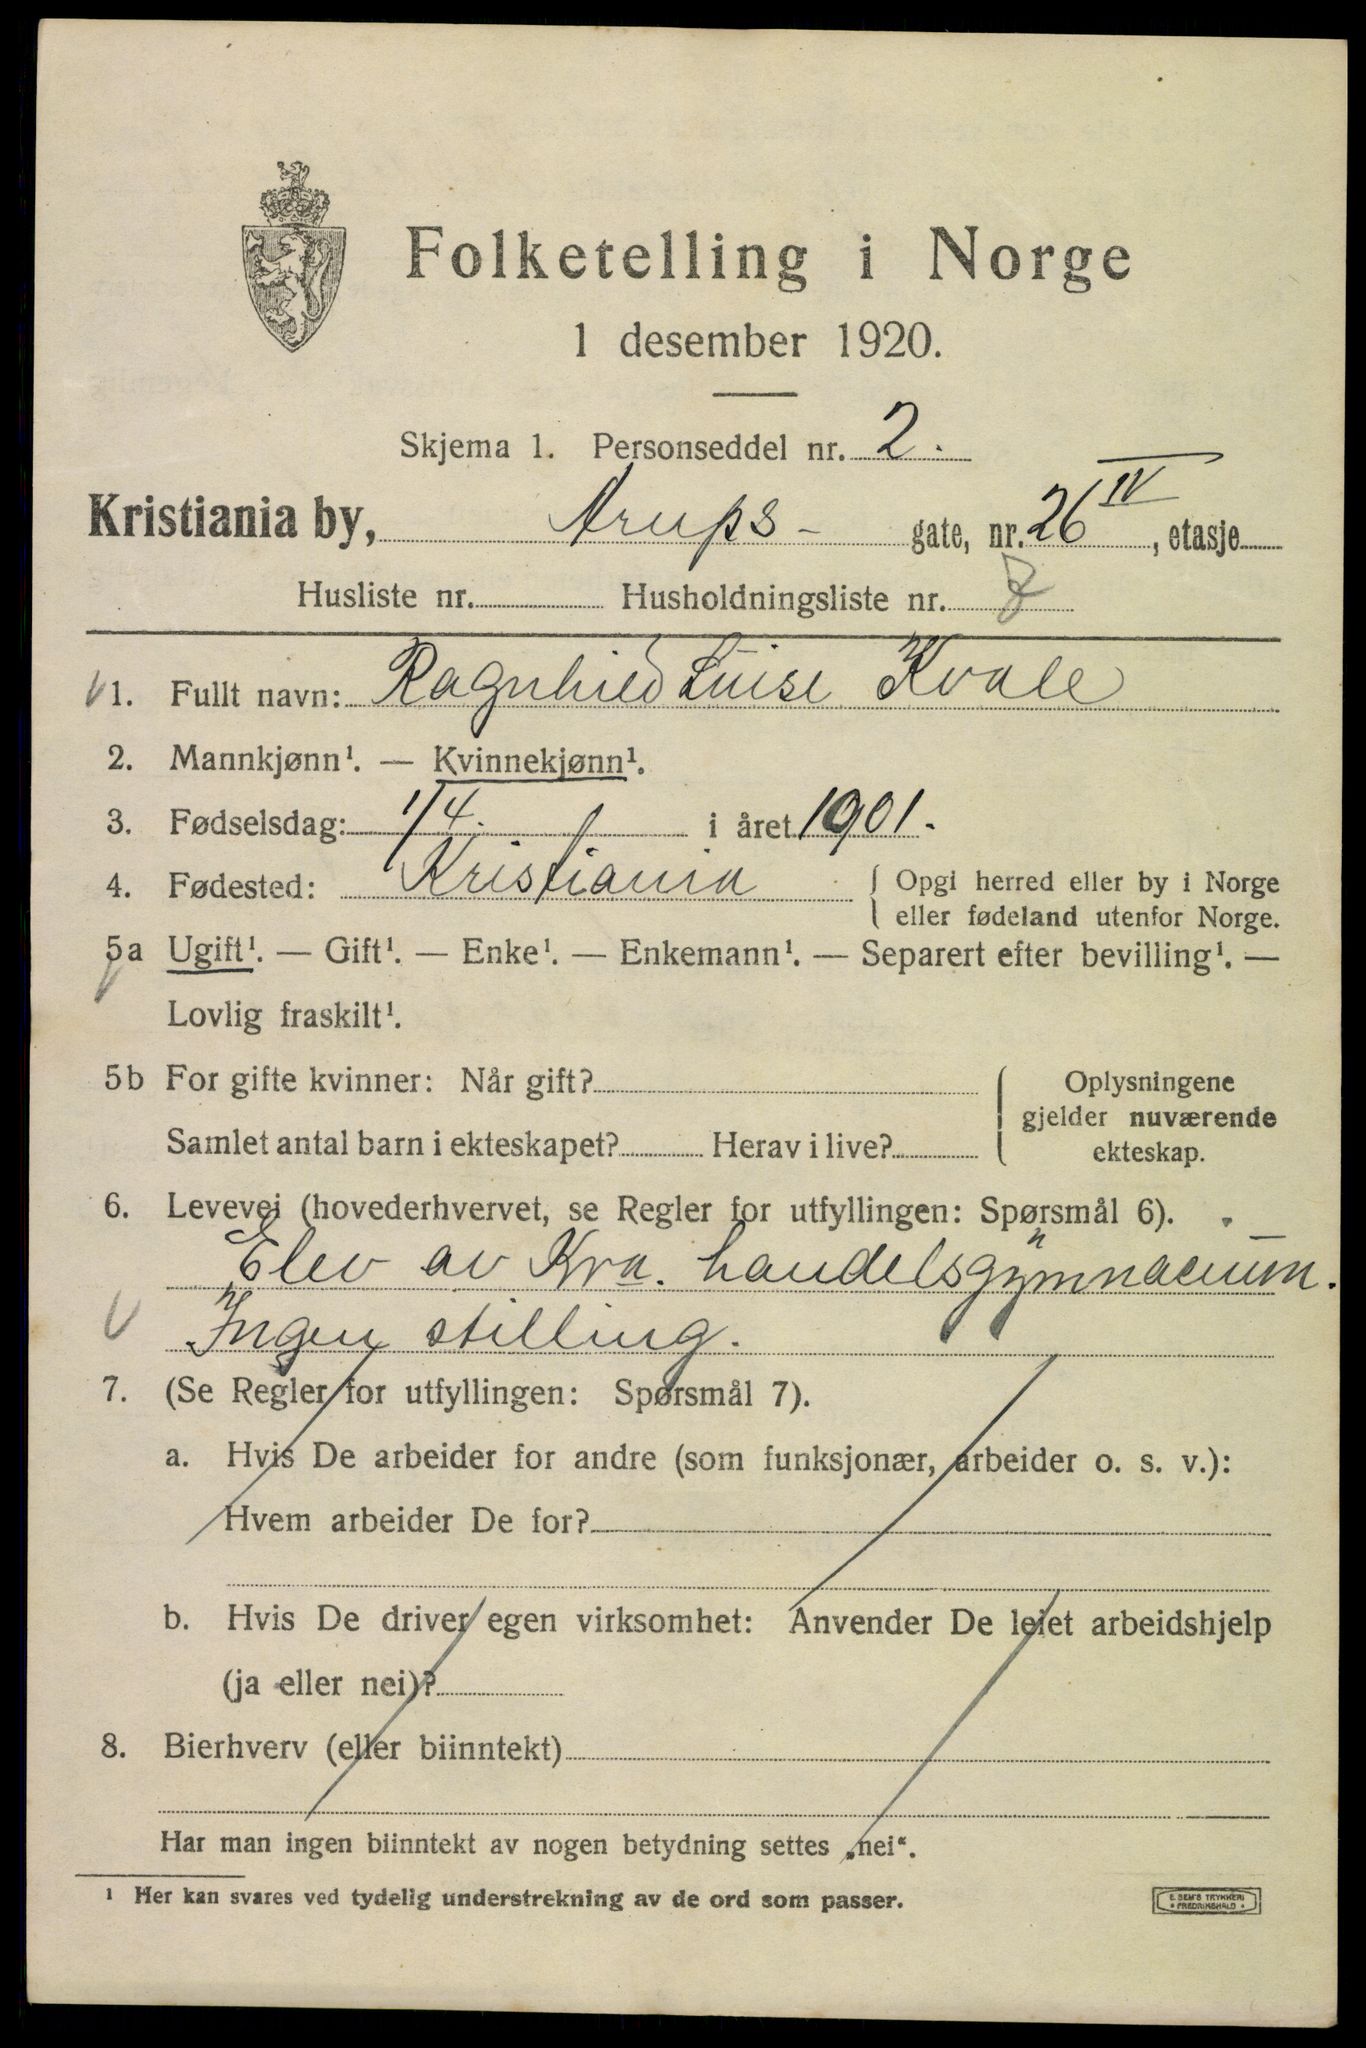 Folketelling i Norge
1 desember 1920.
Skjema 1. Personseddel nr. 2.
Kristiania by, Arups- gate, nr. 26 IV, etasje
Husliste nr. Husholdningsliste nr.
1. Fullt navn: Ragnhild Luise Kvale
2. Mannkjønn¹. — Kvinnekjønn¹.
3. Fødselsdag: 1/4. i året 1901.
4. Fødested: Kristiania { Opgi herred eller by i Norge
eller fødeland utenfor Norge.
5a Ugift¹. — Gift¹. — Enke¹. — Enkemann¹. — Separert efter bevilling¹. —
Lovlig fraskilt¹.
5b For gifte kvinner: Når gift? { Oplysningene
gjelder nuværende
Samlet antal barn i ekteskapet? Herav i live?
ekteskap.
6. Levevei (hovederhvervet, se Regler for utfyllingen: Spørsmål 6).
Elev av Kra. handelsgymnacium.
Ingen stilling.
7. (Se Regler for utfyllingen: Spørsmål 7).
a. Hvis De arbeider for andre (som funksjonær, arbeider o. s. v.):
Hvem arbeider De for?
b. Hvis De driver egen virksomhet: Anvender De leiet arbeidshjelp
(ja eller nei)?
8. Bierhverv (eller biinntekt)
Har man ingen biinntekt av nogen betydning settes „nei“.
¹ Her kan svares ved tydelig understrekning av de ord som passer.
E. SEM'S TRYKKERI
FREDRIKSHALD